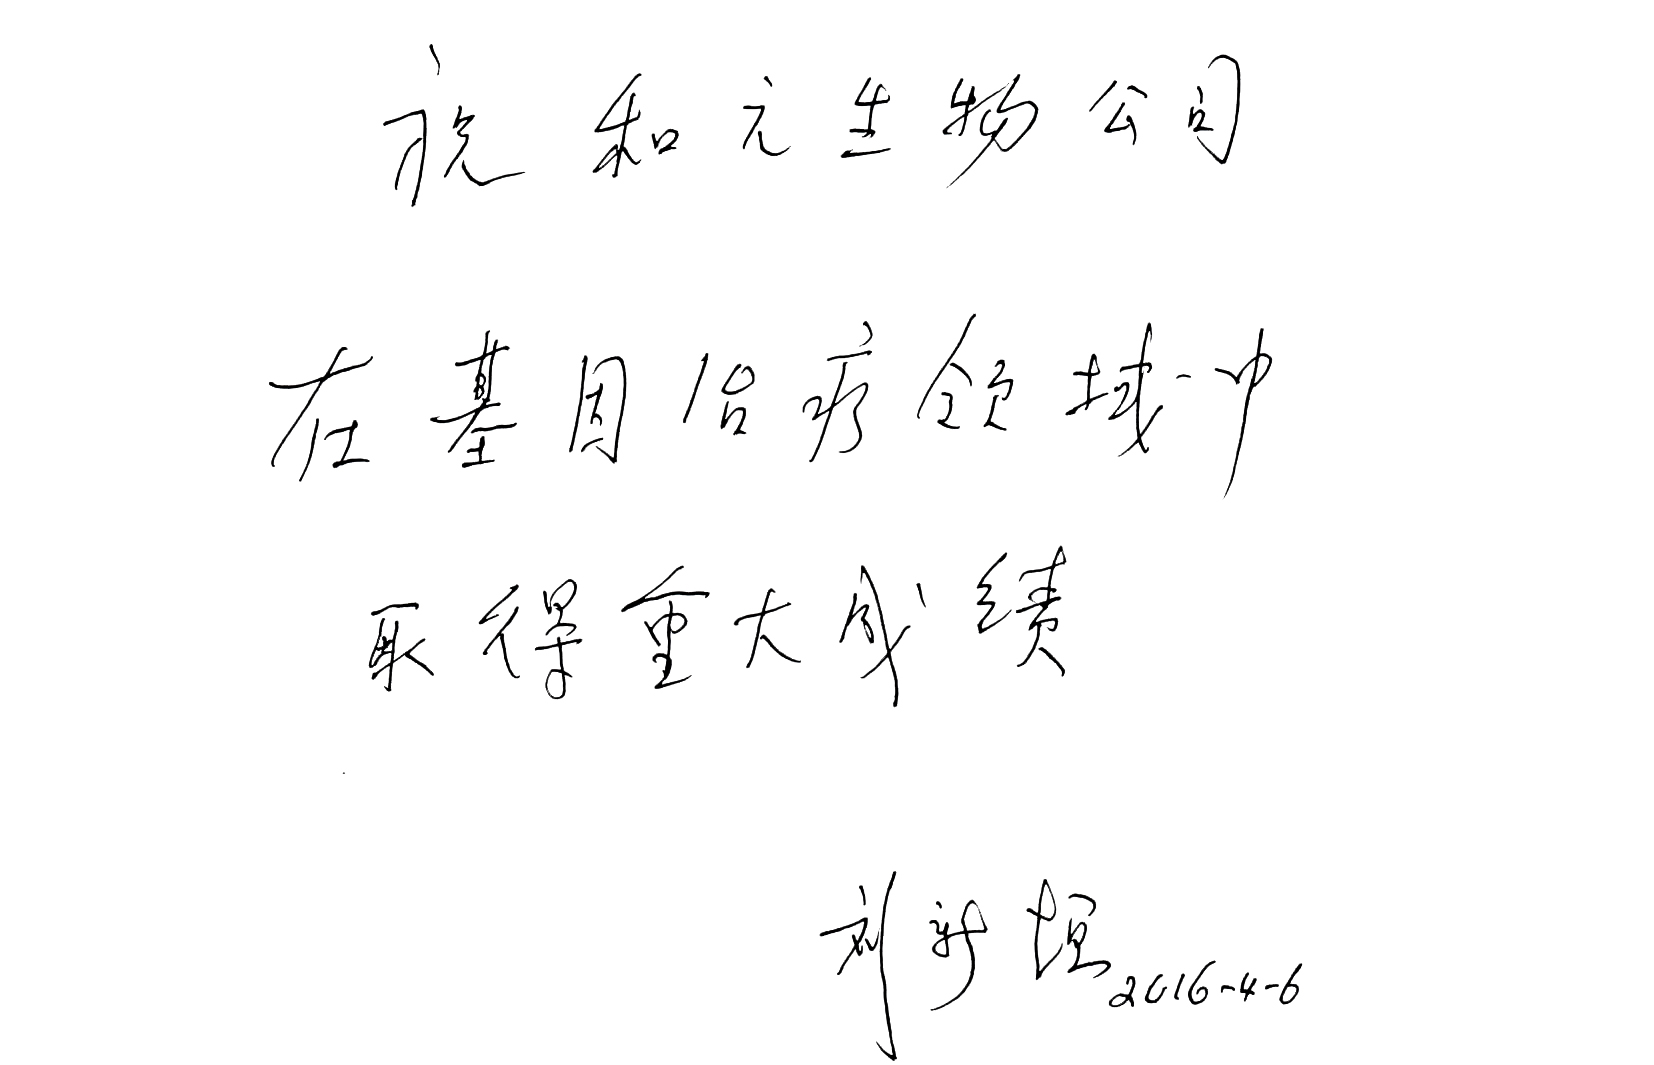 祝和元生物公司
在基因治疗领域中
取得重大成绩
刘新垣 2016-4-6